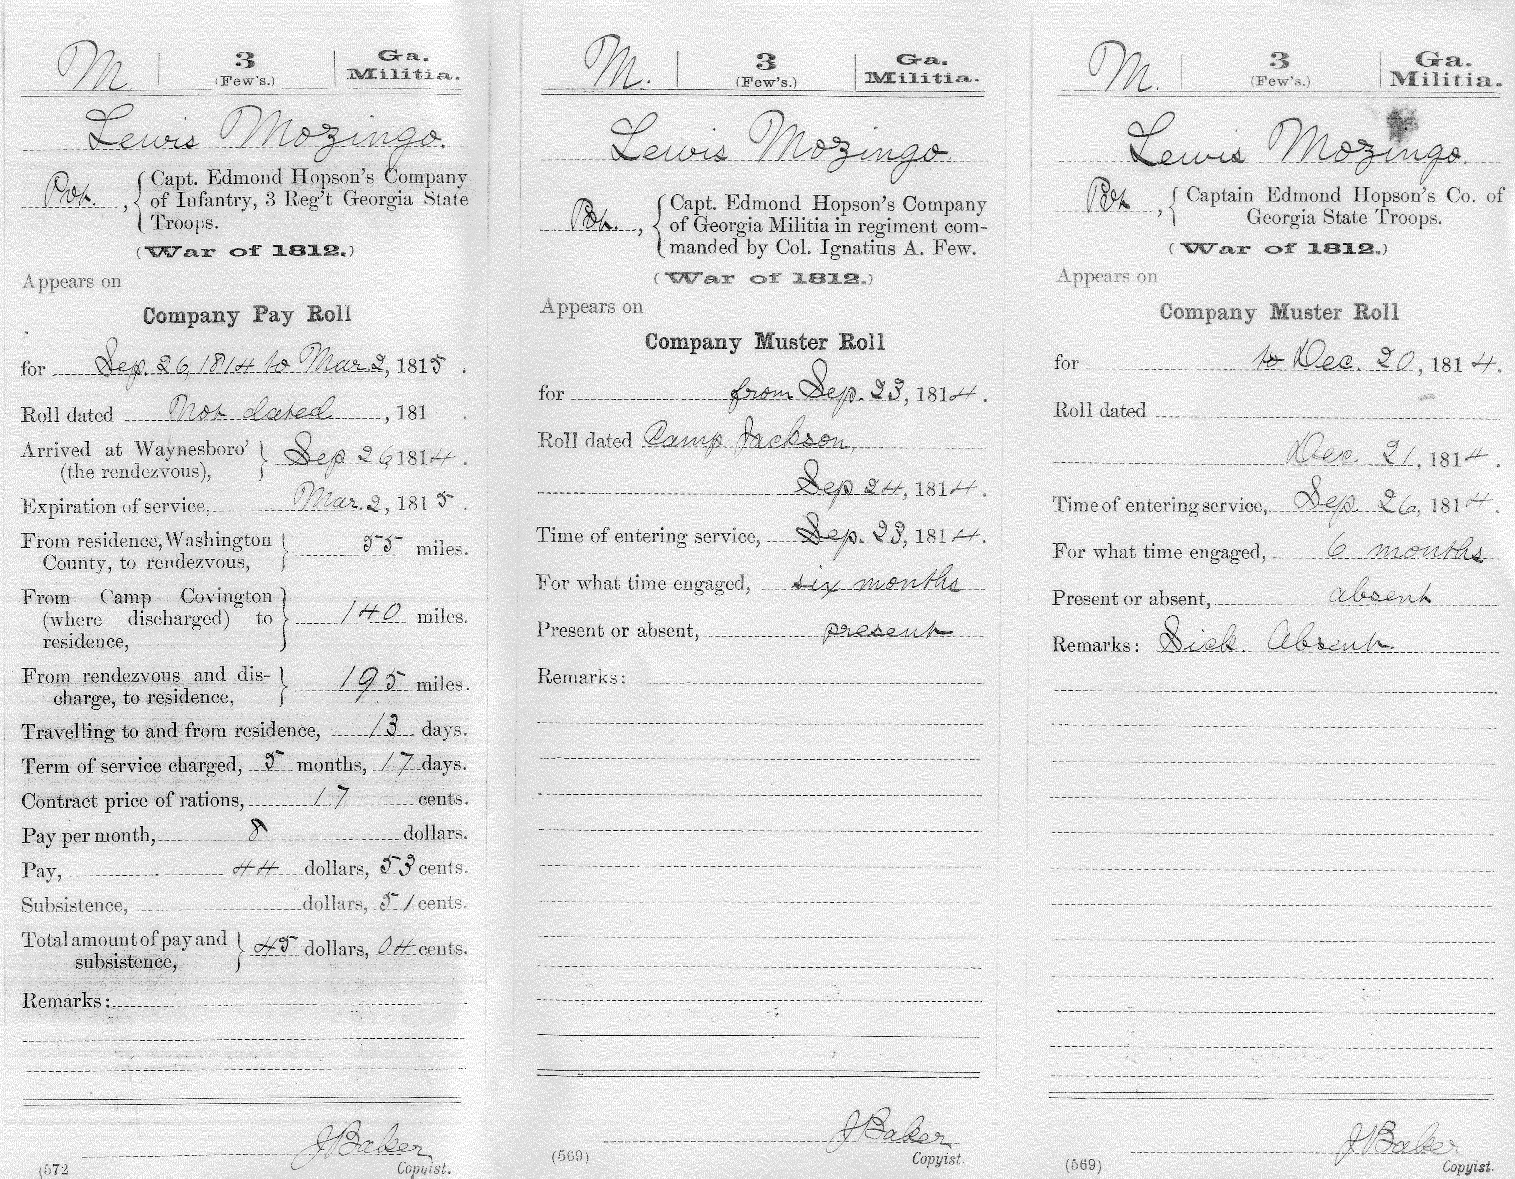 M 3 Ga.
(Few's.) Militia.
Lewis Mozingo.
Pvt., { Capt. Edmond Hopson's Company
of Infantry, 3 Reg't Georgia State
Troops.
(War of 1812.)
Appears on
Company Pay Roll
for Sep. 26, 1814 to Mar 2, 1815.
Roll dated Not dated, 181 .
Arrived at Waynesboro' } Sep 26 1814.
(the rendezvous),
Expiration of service, Mar. 2, 1815.
From residence, Washington } 55 miles.
County, to rendezvous,
From Camp Covington }
(where discharged) to 140 miles.
residence,
From rendezvous and dis- } 195 miles.
charge, to residence,
Travelling to and from residence, 13 days.
Term of service charged, 5 months, 17 days.
Contract price of rations, 17 cents.
Pay per month, 8 dollars.
Pay, 44 dollars, 53 cents.
Subsistence, dollars, 51 cents.
Total amount of pay and } 45 dollars, 04 cents.
subsistence,
Remarks:
J Baker
(572 Copyist.
M. 3 Ga.
(Few's.) Militia.
Lewis Mozingo
Pvt., { Capt. Edmond Hopson's Company
of Georgia Militia in regiment com-
manded by Col. Ignatius A. Few.
(War of 1812.)
Appears on
Company Muster Roll
for from Sep. 23, 1814.
Roll dated Camp Jackson,
Sep 24, 1814.
Time of entering service, Sep. 23, 1814.
For what time engaged, six months
Present or absent, present
Remarks:
J Baker
(569) Copyist.
M. 3 Ga.
(Few's.) Militia.
Lewis Mozingo.
Pvt, { Captain Edmond Hopson's Co. of
Georgia State Troops.
(War of 1812.)
Appears on
Company Muster Roll
for to Dec. 20, 1814.
Roll dated
Dec. 21, 1814.
Time of entering service, Sep. 26, 1814.
For what time engaged, 6 months
Present or absent, absent
Remarks: Sick. Absent.
J Baker
(569) Copyist.